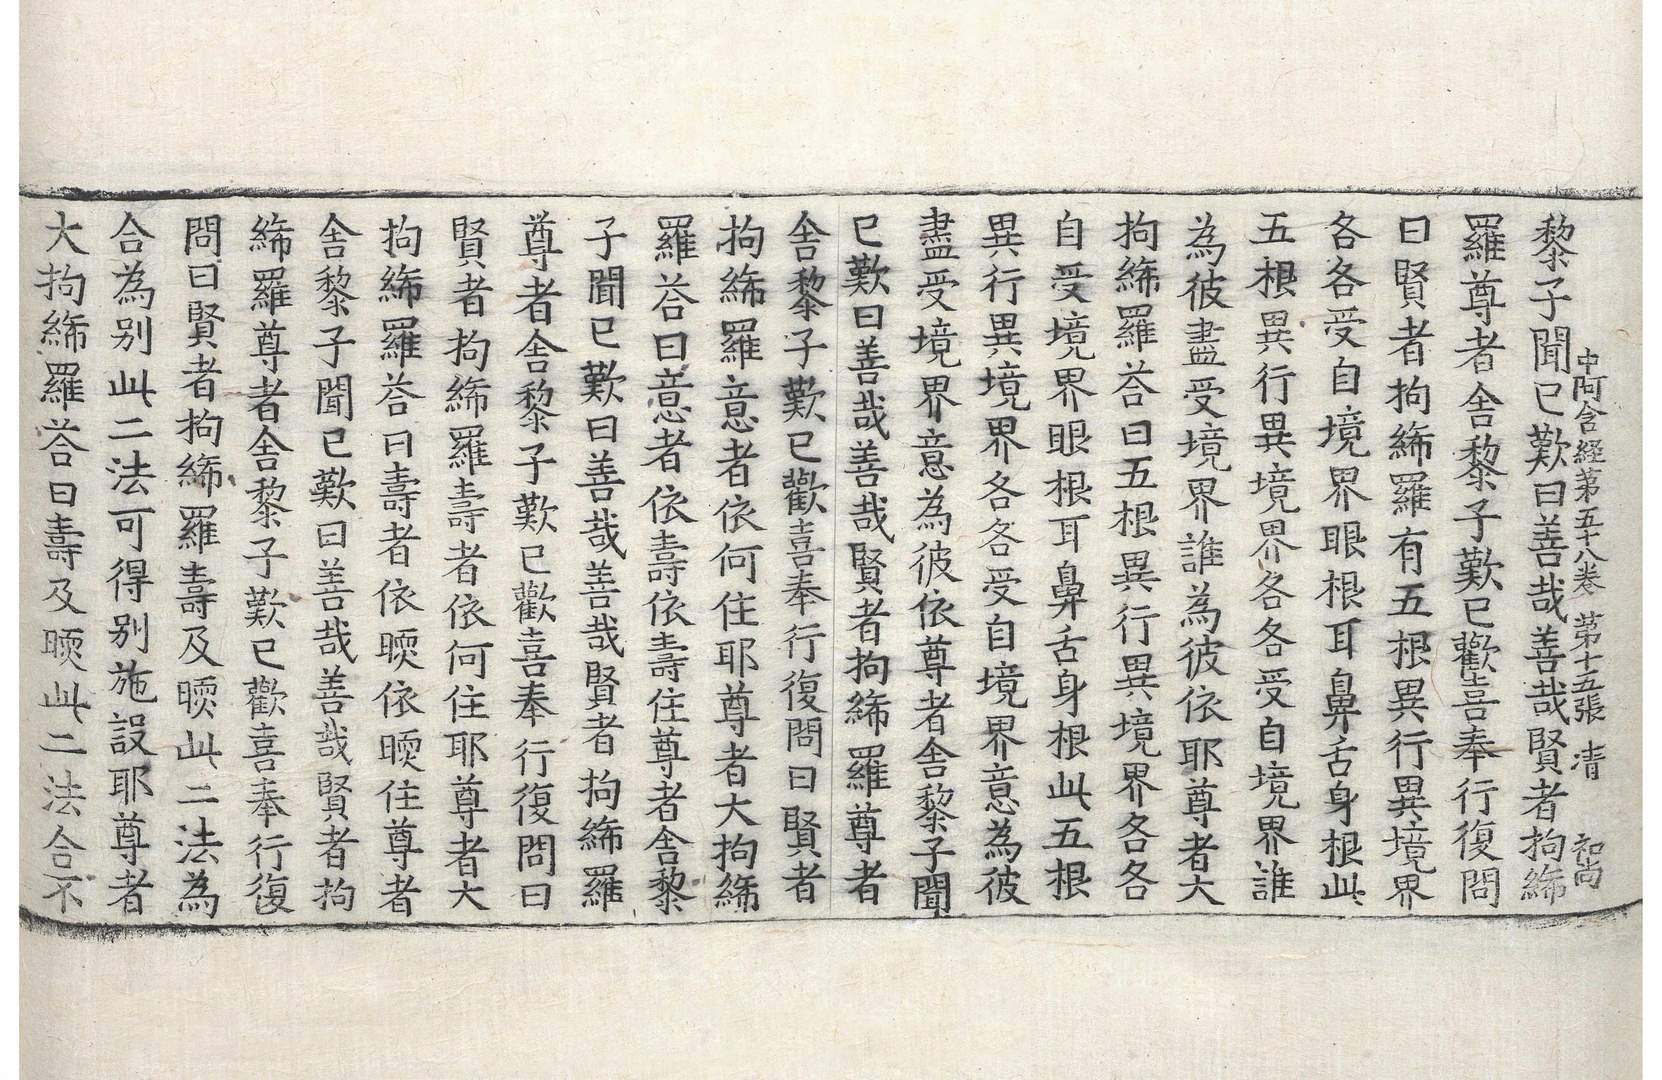 中阿含経第五十八卷 第十五張 清 和尚
黎子聞已歎曰善哉善哉賢者拘絺
羅尊者舍黎子歎已歡喜奉行復問
曰賢者拘絺羅有五根異行異境界
各各受自境界眼根耳鼻舌身根此
五根異行異境界各各受自境界誰
為彼盡受境界誰為彼依耶尊者大
拘絺羅荅曰五根異行異境界各各
自受境界眼根耳鼻舌身根此五根
異行異境界各各受自境界意為彼
盡受境界意為彼依尊者舍黎子聞
已歎曰善哉善哉賢者拘絺羅尊者
舍黎子歎已歡喜奉行復問曰賢者
拘絺羅意者依何住耶尊者大拘絺
羅荅曰意者依壽依壽住尊者舍黎
子聞已歎曰善哉善哉賢者拘絺羅
尊者舍黎子歎已歡喜奉行復問曰
賢者拘絺羅壽者依何住耶尊者大
拘絺羅荅曰壽者依暝依暝住尊者
舍黎子聞已歎曰善哉善哉賢者拘
絺羅尊者舍黎子歎已歡喜奉行復
問曰賢者拘絺羅壽及暝此二法為
合為別此二法可得別施設耶尊者
大拘絺羅荅曰壽及暝此二法合不